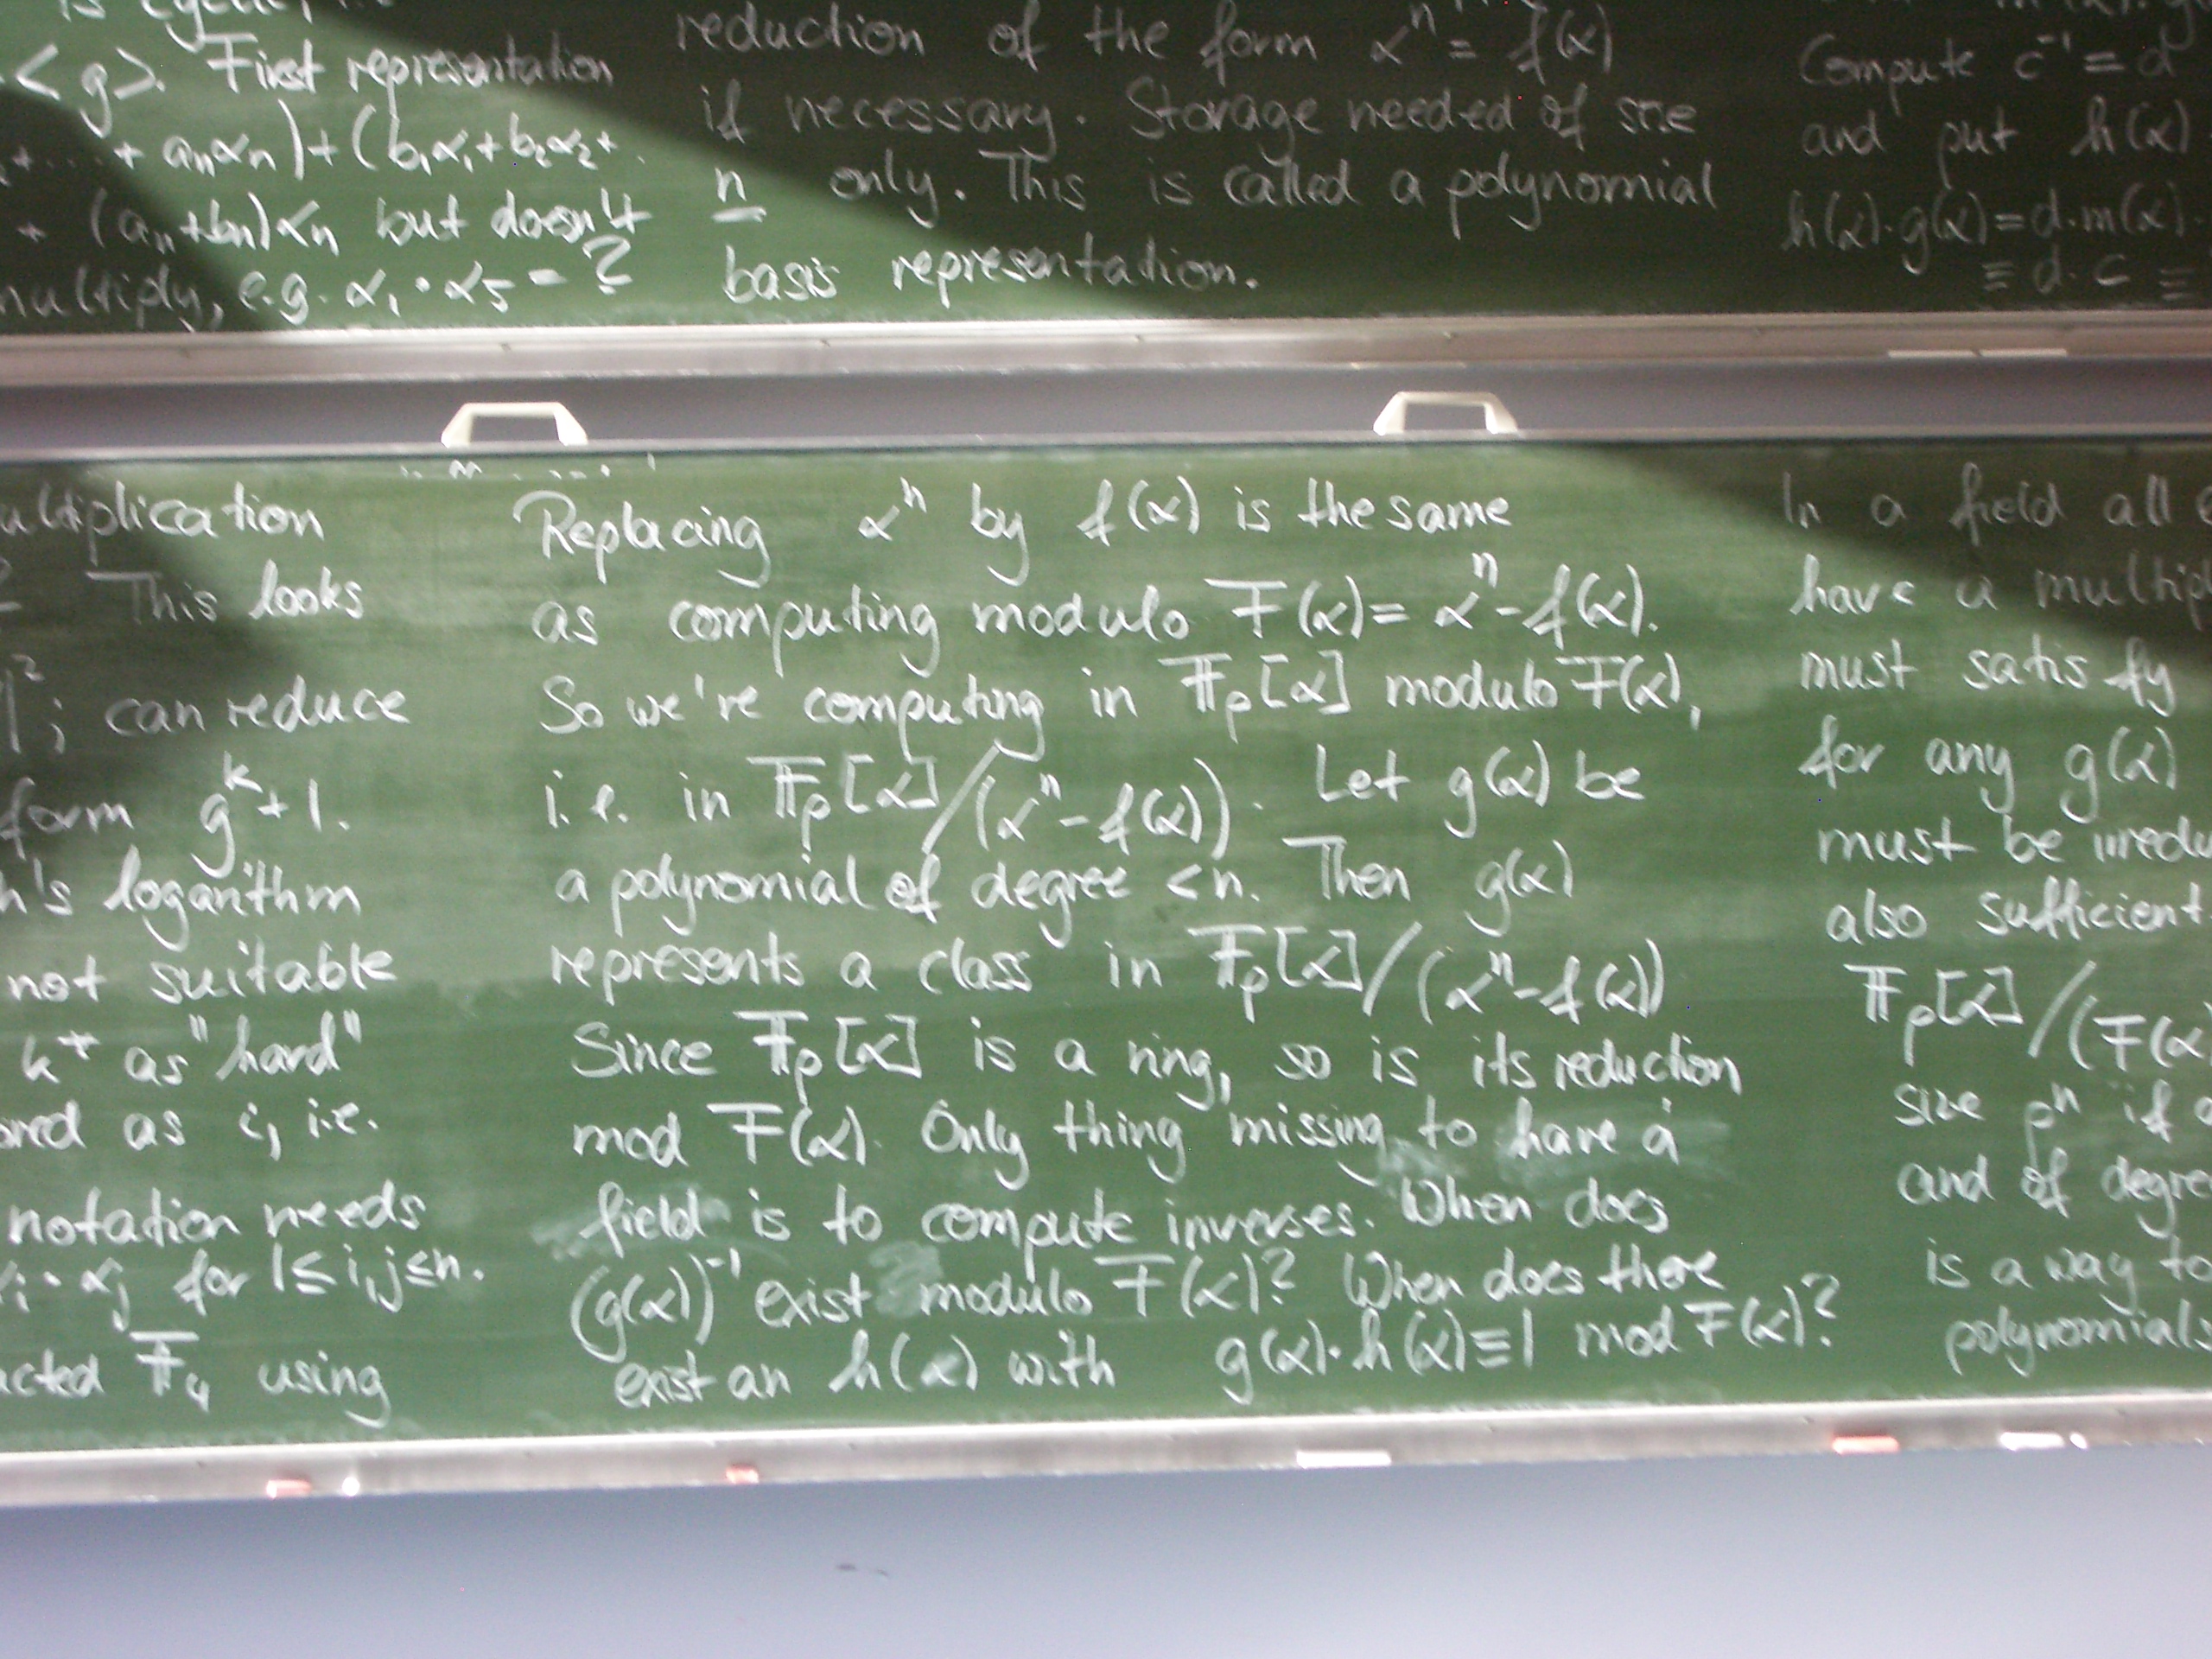 <g>. First representation
+ ... + aₙαₙ) + (b₁α₁ + b₂α₂ + .
+ (aₙ+bₙ)αₙ but doesn't
multiply, e.g. α₁ · α₅ = ?
reduction of the form αⁿ = f(α)
if necessary. Storage needed of size
n only. This is called a polynomial
basis representation.
Compute c⁻¹ = d
and put h(α)
h(α)·g(α) = d·m(α)
≡ d·c ≡
ultiplication
This looks
; can reduce
form gᵏ+1.
h's logarithm
not suitable
k* as "hard"
ored as i, i.e.
notation needs
αᵢ·αⱼ for 1≤i,j≤n.
ucted 𝔽₄ using
Replacing αⁿ by f(α) is the same
as computing modulo F(α) = αⁿ - f(α).
So we're computing in 𝔽ₚ[α] modulo F(α),
i.e. in 𝔽ₚ[α]/(αⁿ - f(α)). Let g(α) be
a polynomial of degree <n. Then g(α)
represents a class in 𝔽ₚ[α]/(αⁿ-f(α))
Since 𝔽ₚ[α] is a ring, so is its reduction
mod F(α). Only thing missing to have a
field is to compute inverses. When does
(g(α))⁻¹ exist modulo F(α)? When does there
exist an h(α) with g(α)·h(α) ≡ 1 mod F(α)?
In a field all
have a multip
must satisfy
for any g(α)
must be irredu
also sufficient
𝔽ₚ[α]/(F(α
size pⁿ if
and of degre
is a way to
polynomials